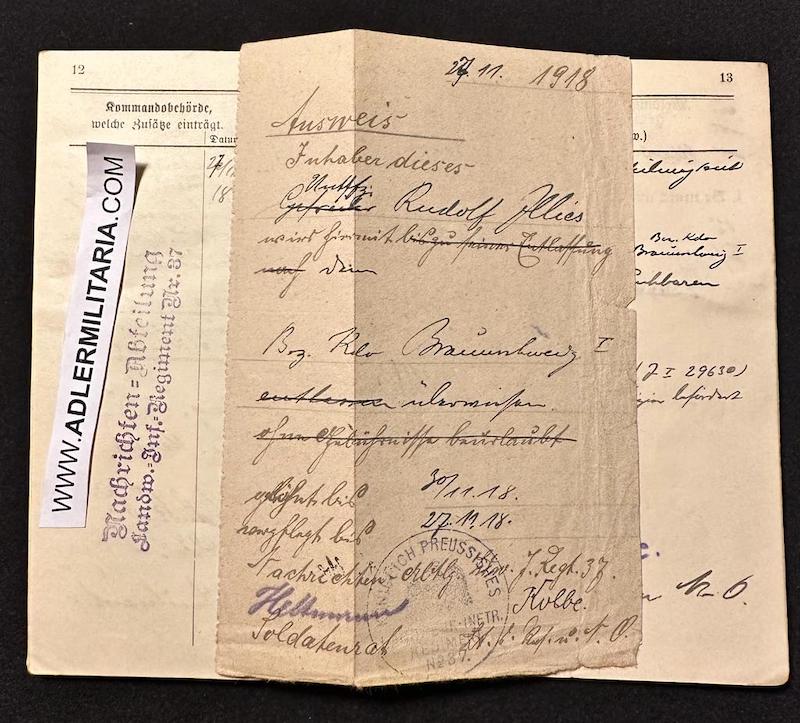 12
Kommandobehörde,
welche Zusätze einträgt.
Datum
18
WWW.ADLERMILITARIA.COM
Nachrichten-Abteilung
Landw.-Inf.-Regiment Nr. 37
27. 11. 1918
Ausweis
Inhaber dieses
Untffz.
Gefreiter Rudolf Illies
wird hiermit bis zu seiner Entlassung
nach dem
Bez. Kdo Braunschweig I
entlassen überwiesen
ohne Gebührnisse beurlaubt
gelöhnt bis 30/11.18.
verpflegt bis 27.11.18.
Nachrichten Abtlg J. Regt. 37.
KÖNIGLICH PREUSSISCHES
No 37.
Hellmann Kolbe.
Soldatenrat Lt. d. Res. u. N. O.
13
Bez. Kdo
Braunschweig I
(J I 29630)
befördert
N. O.